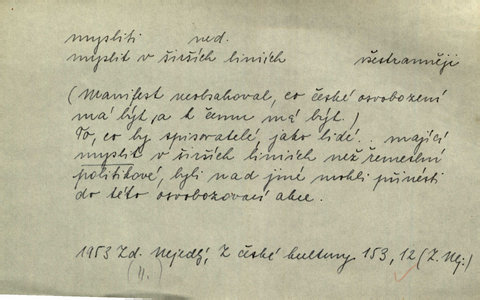 mysliti ned.
myslit v širších liniích všestranněji
(Manifest neobsahoval, co české osvobození
má být, a k čemu má být.)
To, co by spisovatelé, jako lidé.. mající
myslit v širších liniích než řemeslní
politikové, byli nad jiné mohli přinésti
do této osvobozovací akce.
1953 Zd. Nejedlý, Z české kultury 153, 12 (Z. Nej.)